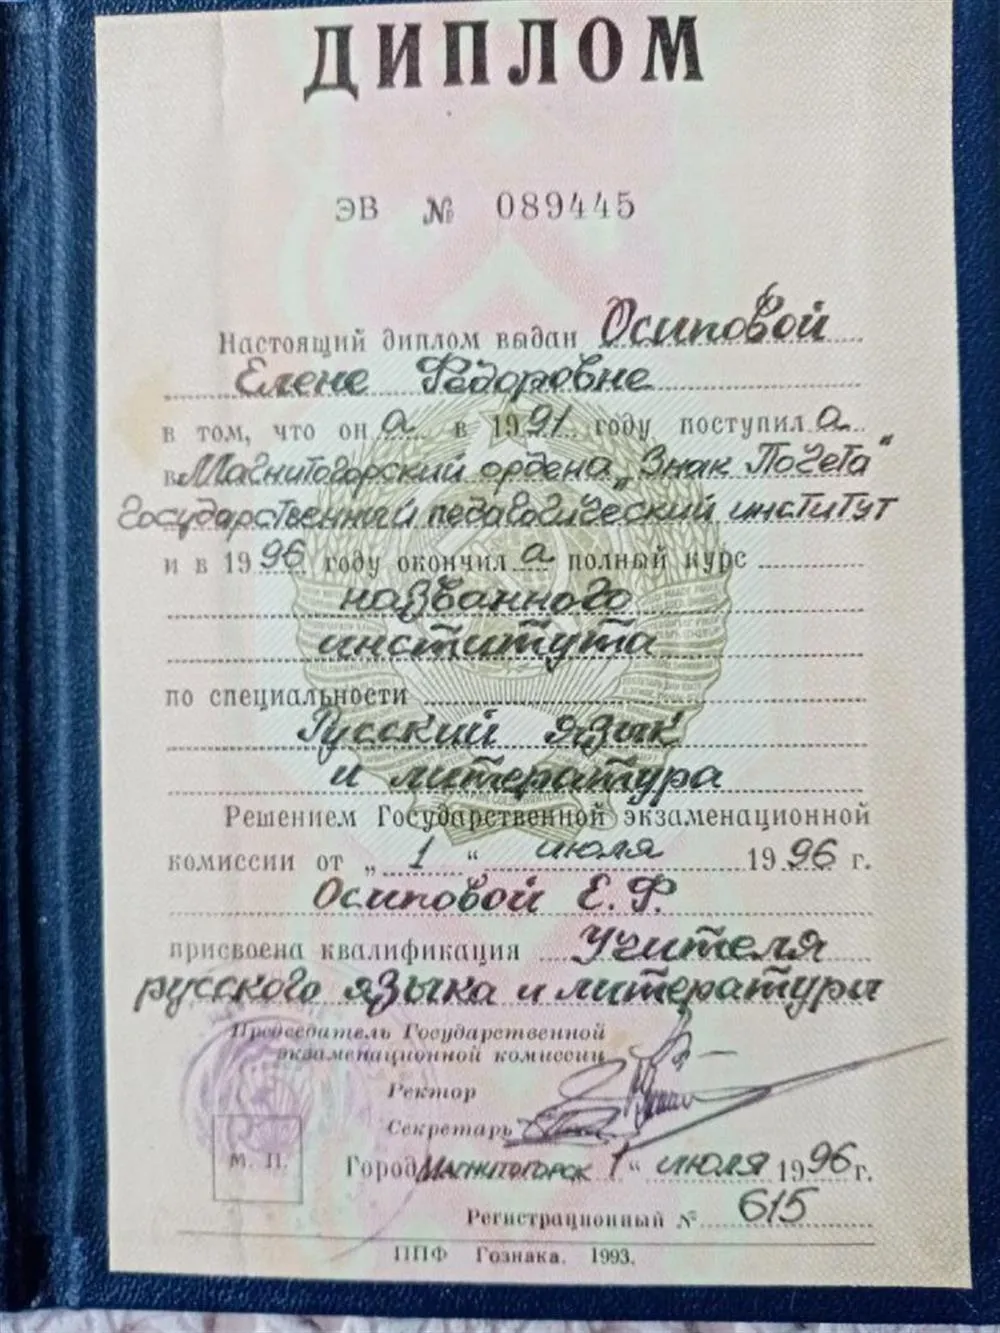 ДИПЛОМ
ЭВ № 089445
Настоящий диплом выдан Осиповой
Елене Фёдоровне
в том, что он а в 1991 году поступил а
в Магнитогорский ордена „Знак Почёта“
государственный педагогический институт
и в 1996 году окончил а полный курс
названного
института
по специальности
Русский язык
и литература
Решением Государственной экзаменационной
комиссии от „ 1 “ июля 1996 г.
Осиповой Е. Ф.
присвоена квалификация Учителя
русского языка и литературы
Председатель Государственной
экзаменационной комиссии
Ректор
Секретарь
М. П.
Город Магнитогорск 1 “ июля 1996 г.
Регистрационный № 615
ППФ Гознака. 1993.